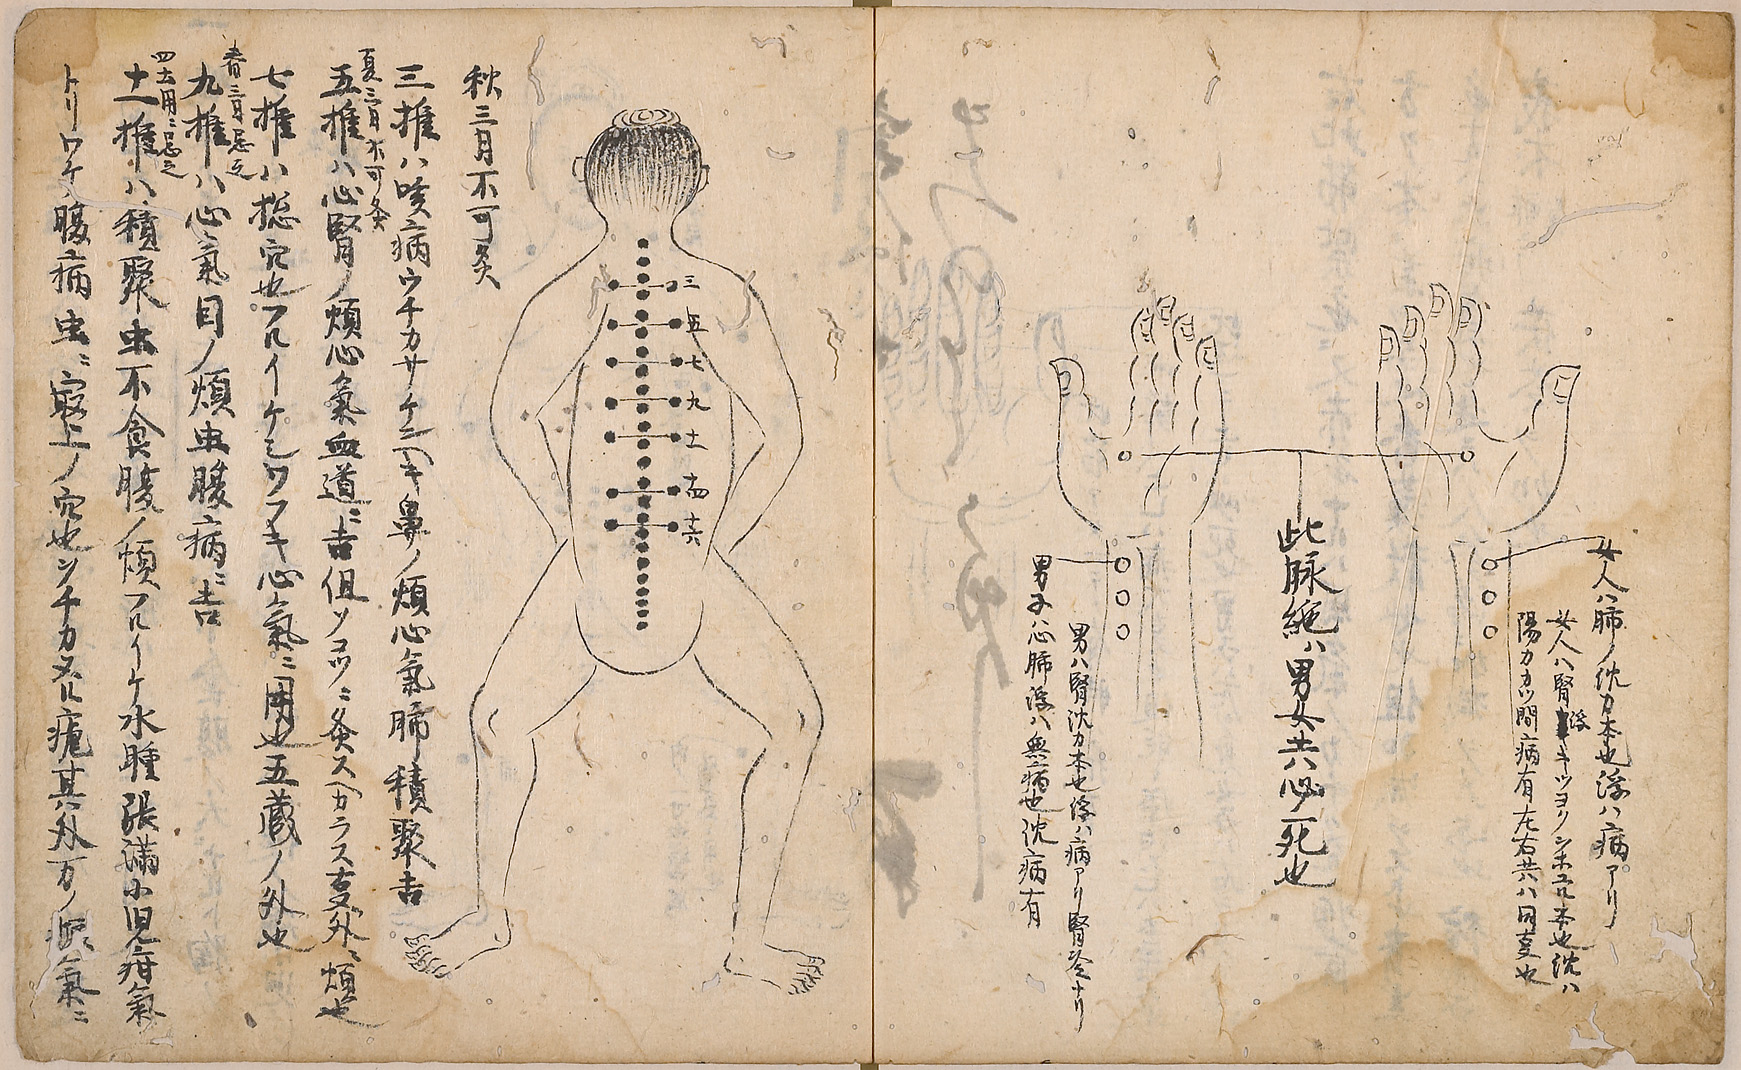 女人ハ肺ノ沈カ本也浮ハ病アリ
女人ハ腎浮
陽カカツ間病有左右共ハ同夏也
此脉絶ハ男女共必死也
男ハ腎沈カ本也浮ハ病アリ腎
男子ハ心肺浮ハ無病也沈病有
三
五
七
九
十一
十四
十六
秋三月不可灸
三推ハ咳病ウチカサケ
鼻ノ煩心氣肺積聚吉
夏三月不可灸
五推ハ心腎ノ煩心氣血道ニ吉但
灸スヘカラス
外ニ煩也
七推ハ惣穴也フルイケ
心氣ニ用也五蔵ノ外也
春三月忌之
九推ハ心氣目ノ煩虫腹病ニ吉
四土用ニ忌之
十一推ハ積聚虫不食腹ノ煩フルイケ水腫張満小児疳氣
トリワケ腹病虫ニ寂上ノ穴也
其外万ノ
氣ニ